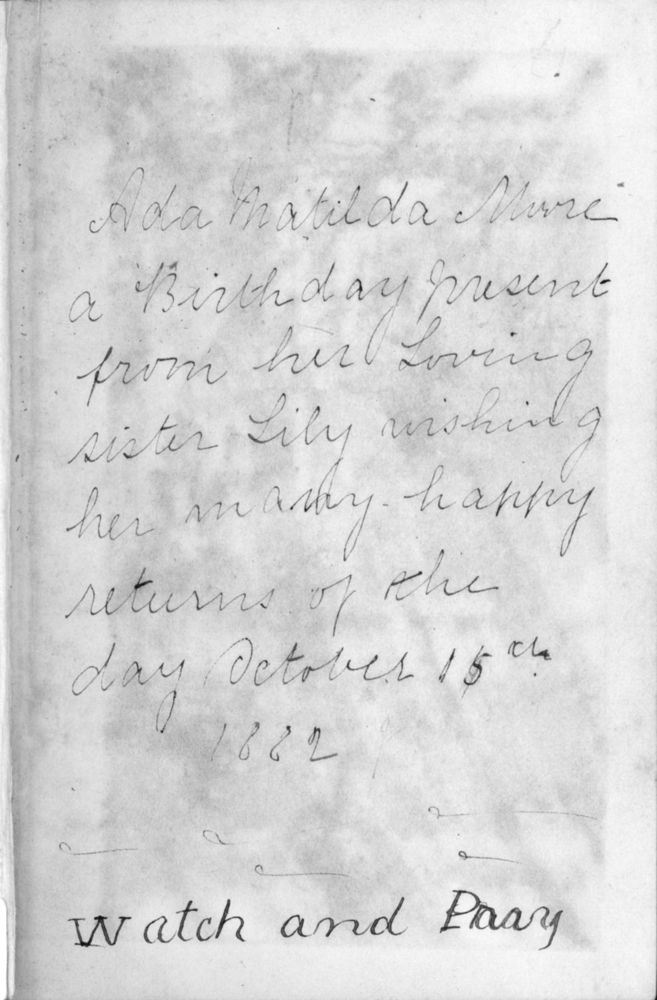 Ada Matilda Moore
a Birthday present
from her Loving
sister Lily wishing
her many happy
returns of the
day October 15th
1882
Watch and Pray